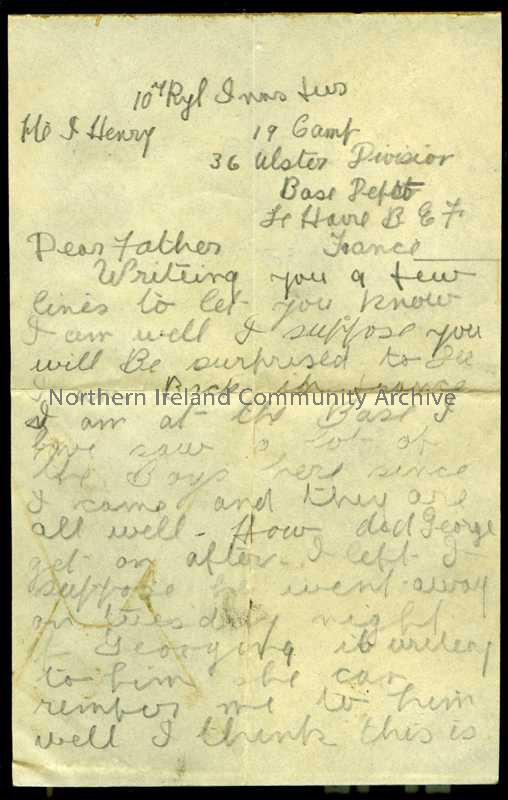 10th Ryl Innis Fus
J Henry 19 Camp
36 Ulster Division
Base Depot
Le Havre B E F
France
Dear Father
Writeing you a few
lines to let you know
I am well I suppose you
will Be surprised to See
I am Back in france
Northern Ireland Community Archive
I am at the Base I
have saw a lot of
the Boys here since
I came and they are
all well. How did George
get on after I left I
suppose he went away
on tuesday night
if Georgina is writeing
to him she can
rember me to him
well I think this is